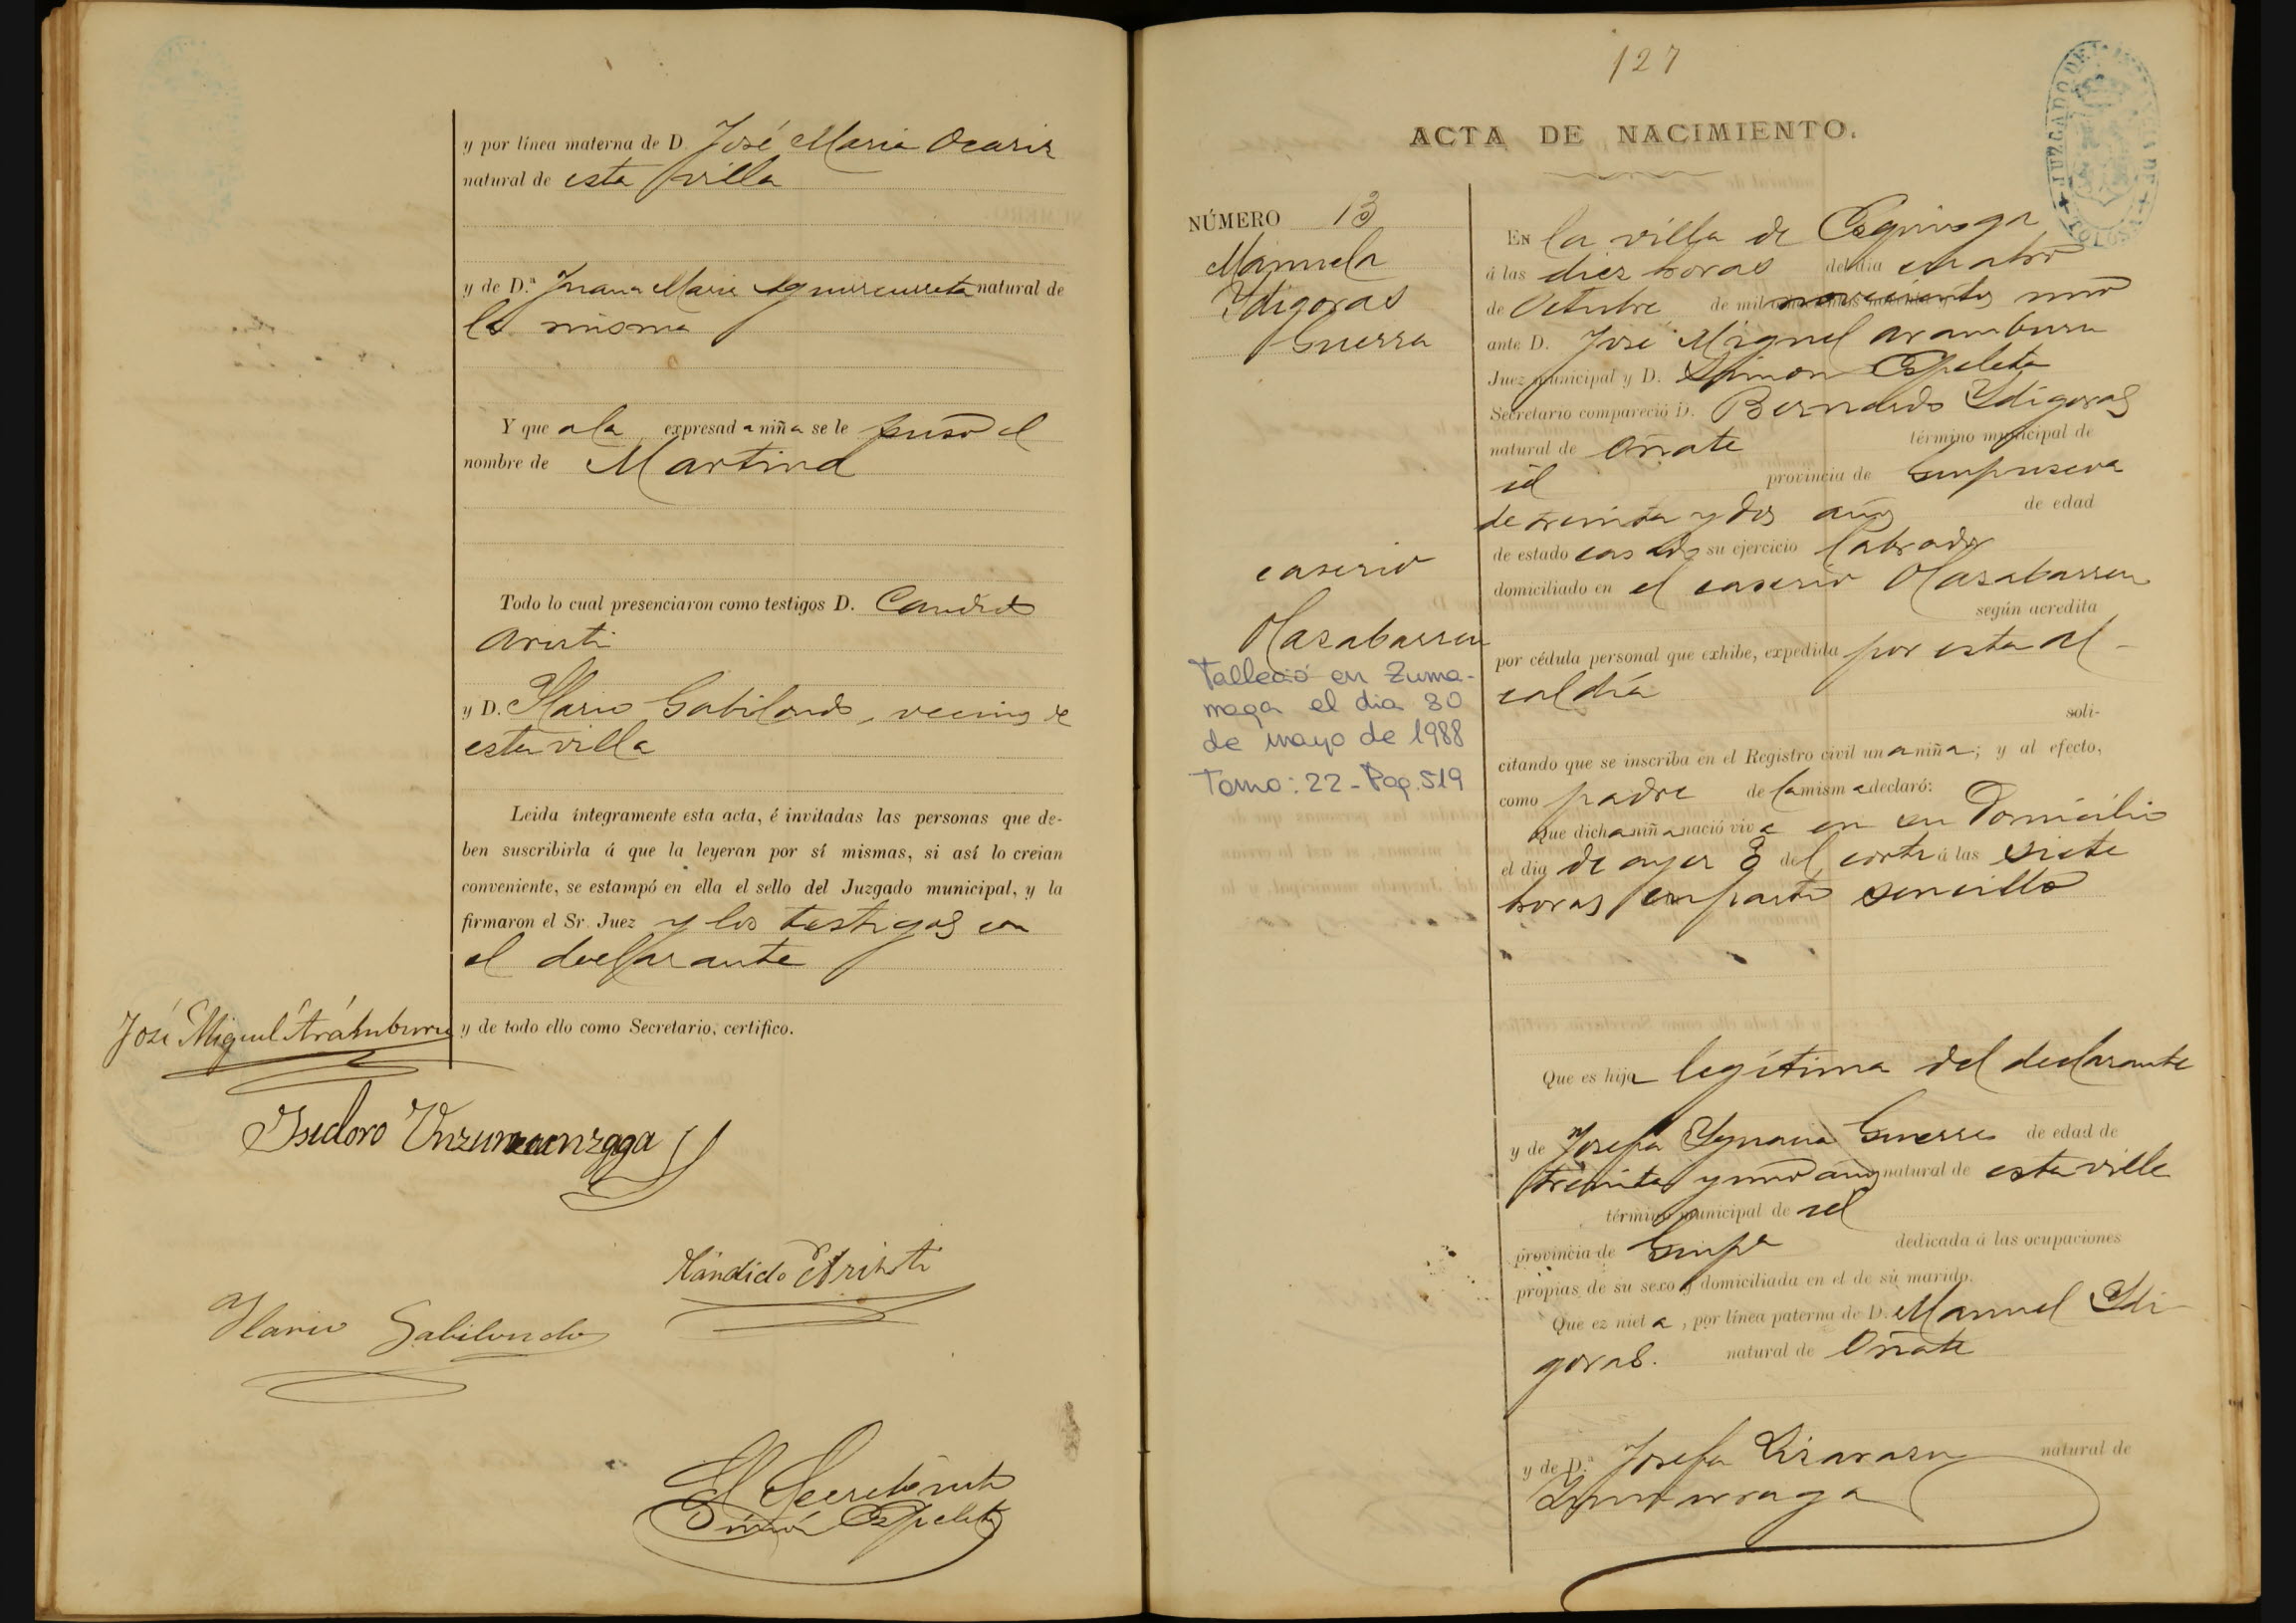 y por línea materna de D. José Maria Ocariz
natural de esta villa
y de D.ª Juana Maria Aguirreurreta natural de
la misma
Y que a la expresada niña se le puso el
nombre de Martina
Todo lo cual presenciaron como testigos D. Candido
Aristi
y D. Ylario Gabilondo, vecinos de
esta villa
Leida íntegramente esta acta, é invitadas las personas que de-
ben suscribirla á que la leyeran por sí mismas, si así lo creian
conveniente, se estampó en ella el sello del Juzgado municipal, y la
firmaron el Sr. Juez y los testigos con
el declarante
y de todo ello como Secretario, certifico.
José Miguel Arámburu
Ysidoro Unzurrunzaga
Kándido Aristi
Ylario Gabilondo
El Secretario
Simón Espeleta
127
JUZGADO DE 1ª INSTANCIA DE TOLOSA
ACTA DE NACIMIENTO.
NÚMERO 13
Manuela
Ydigoras
Guerra
caserio
Olazabarren
Falleció en Zuma-
rraga el dia 30
de mayo de 1988
Tomo: 22 - Pag. 519
En la villa de Ezquioga
á las diez horas del dia cuatro
de Octubre de mil novecientos uno
ante D. José Miguel Aramburu
Juez municipal y D. Simon Espeleta
Secretario compareció D. Bernardo Ydigoras
natural de Oñate término municipal de
id provincia de Guipuzcoa
de treinta y dos años de edad
de estado casado su ejercicio labrador
domiciliado en el caserio Olazabarren
según acredita
por cédula personal que exhibe, expedida por esta al-
caldía
soli-
citando que se inscriba en el Registro civil una niña; y al efecto,
como padre de la misma declaró:
Que dicha niña nació viva en su Domicilio
el dia de ayer 3 del corte á las siete
horas en parto sencillo
Que es hija legítima del declarante
y de Josefa Ygnacia Guerra de edad de
treinta y uno años natural de esta villa
término municipal de id
provincia de Guipª dedicada á las ocupaciones
propias de su sexo y domiciliada en el de su marido.
Que ez nieta, por línea paterna de D. Manuel Ydi-
goras. natural de Oñate
y de D.ª Josefa Lizarazu natural de
Zumarraga